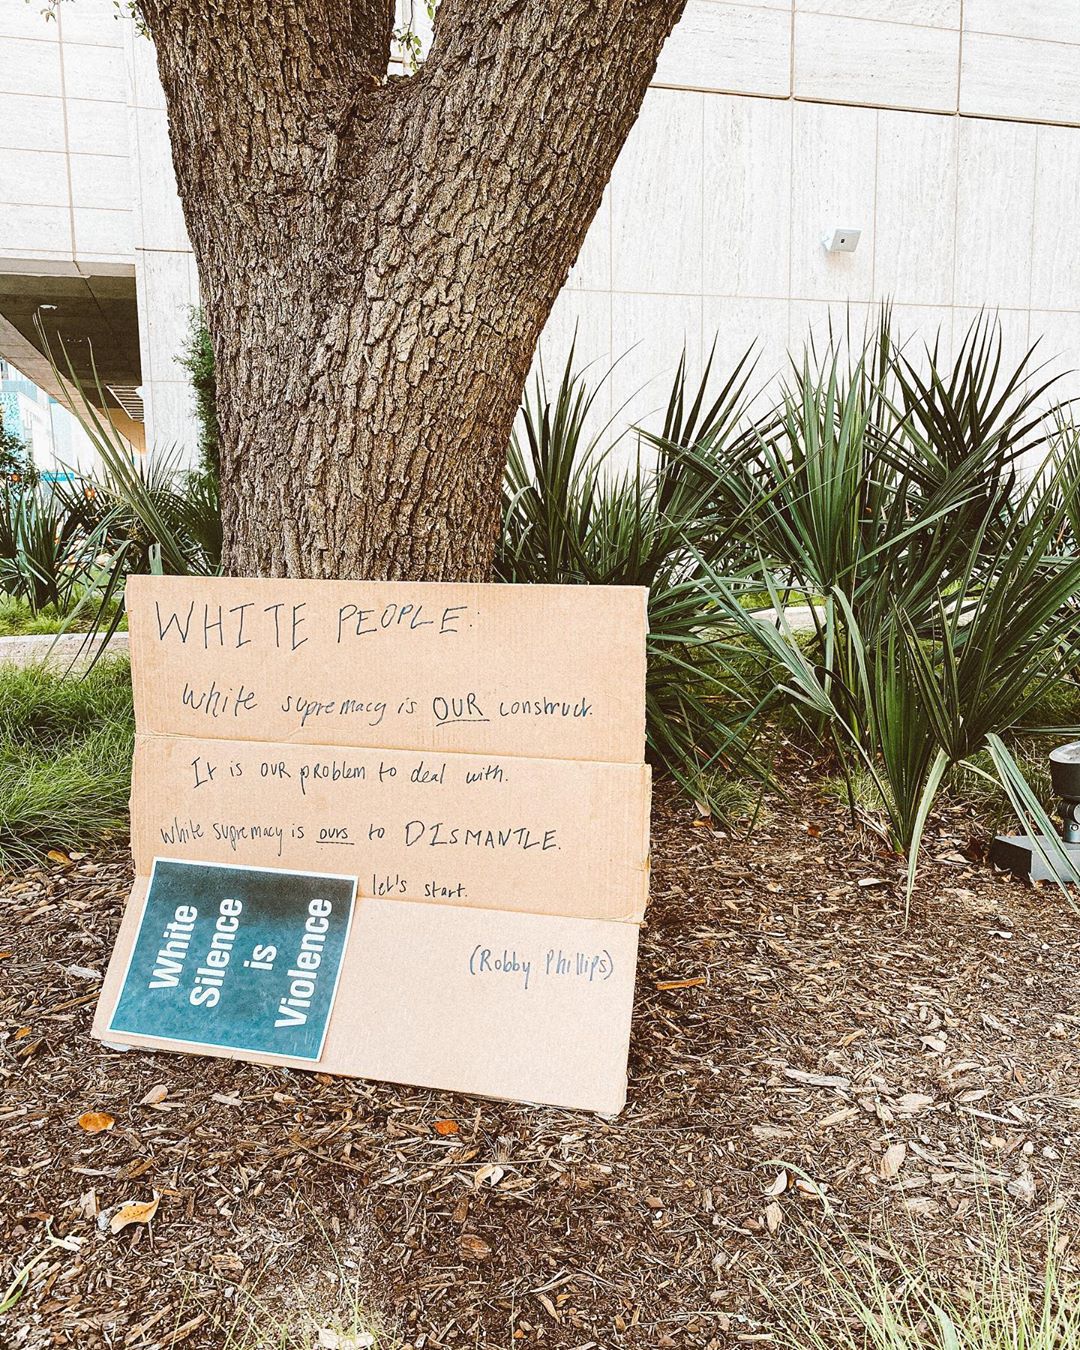 WHITE PEOPLE:
White supremacy is OUR construct.
It is OUR problem to deal with.
White supremacy is ours to DISMANTLE.
let's start.
(Robby Phillips)
White
Silence
is
Violence